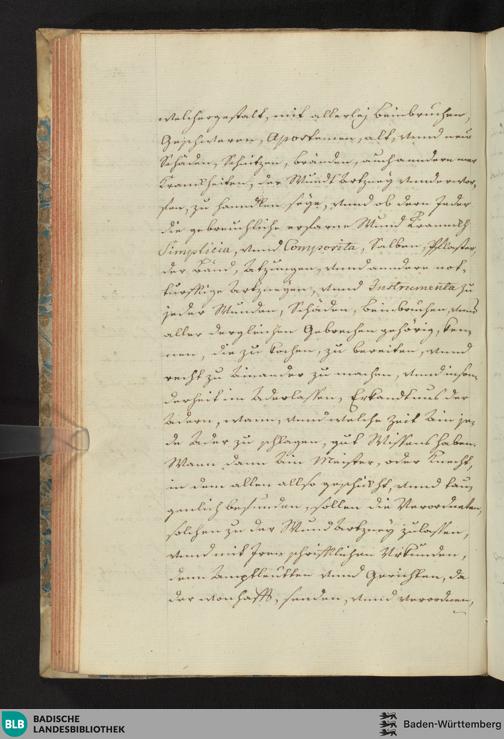 welchergestalt, mit allerley Beinbruchen,
Geschweren, Apostemen, alt, vnnd new
Schäden, Schützen, branden, auch anndern mer
Kranckheiten, der Wundt Artzney vnderworf-
fen, zu hanndlen seye, vnnd ob dern Jeder
die gebreuchliche erfarne Wund
Simplicia, vnnd Composita, Salben, Pflaster,
der Bänd, Atzungen, vnnd anndere not-
turfftige Artzneyen, vnnd Instrumenta zu
jeder Wunden, Schäden, Beinbruchen, vnd
aller dergleichen Gebrechen gehörig, ken-
nen, die zu kochen, zu bereiten, vnnd
recht zu Einander zu machen, vnnd inson-
derheit im Aderlassen, Erkandtnus der
Adern, wann, vnnd welche Zeit Ein je-
de Ader zu schlagen, gut Wissens haben.
Wann dann Ein Meister, oder Knecht,
in dem allen allso geschickht, vnnd taug-
genlich befunden, sollen die Verordneten,
solchen zu der Wund Artzney zulassen,
vnnd mit Iren schrifftlichen Vrkunden,
dem Amptleutten vnnd Gerichten, da
der wonhafft, senden, vnnd verordnen,
BLB BADISCHE
LANDESBIBLIOTHEK
Baden-Württemberg